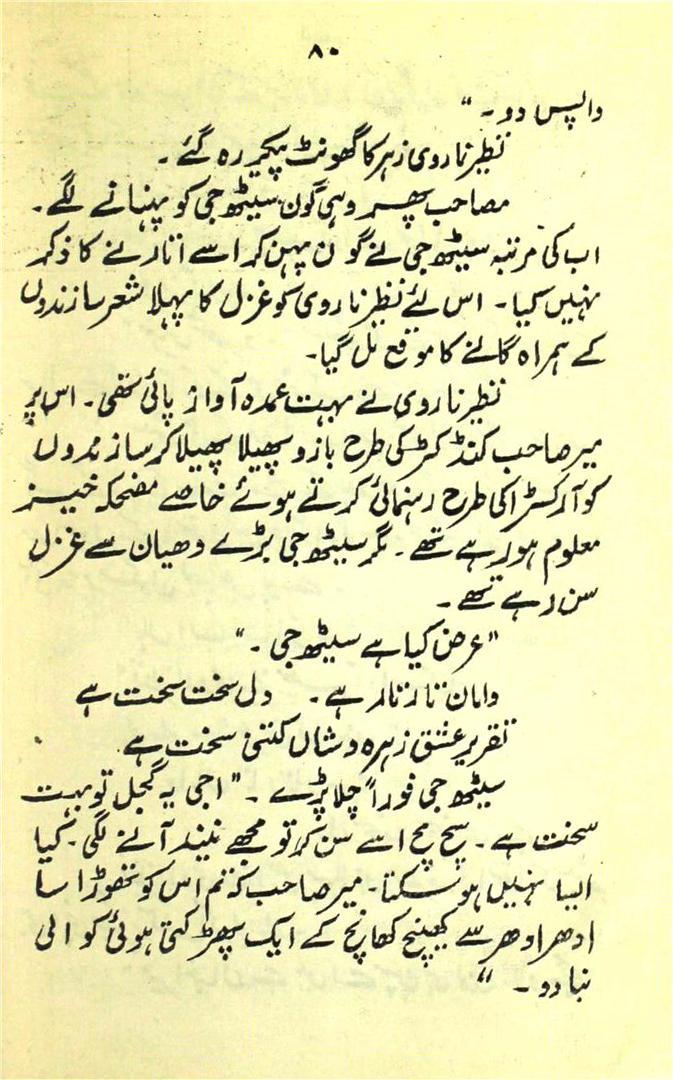 ۸۰
واپس دو۔"
نظیر ناروی زہر کا گھونٹ پیکر رہ گئے۔
مصاحب پھر وہی گون سیٹھ جی کو پہنانے لگے۔
اب کی مرتبہ سیٹھ جی نے گون پہن کر اسے اتارنے کا ذکر
نہیں کیا۔ اس لئے نظیر ناروی کو غزل کا پہلا شعر سازندوں
کے ہمراہ گانے کا موقع مل گیا۔
نظیر ناروی نے بہت عمدہ آواز پائی تھی۔ اس پر
میر صاحب کنڈکٹر کی طرح بازو پھیلا پھیلا کر سازندوں
کو آرکسٹرا کی طرح رہنمائی کرتے ہوئے خاصے مضحکہ خیز
معلوم ہو رہے تھے۔ مگر سیٹھ جی بڑے دھیان سے غزل
سن رہے تھے۔
"عرض کیا ہے سیٹھ جی۔"
دامان تار تار ہے۔ دل سخت سخت ہے
تقریر عشق زہرہ وشاں کتنی سخت ہے
سیٹھ جی فوراً چلا پڑے۔ "اجی یہ گجل تو بہت
سخت ہے۔ سچ مچ اسے سن کر تو مجھے نیند آنے لگی۔ کیا
ایسا نہیں ہو سکتا۔ میر صاحب کہ تم اس کو تھوڑا سا
ادھر ادھر سے کھینچ کھانچ کے ایک پھڑکتی ہوئی کوالی
بنا دو۔"